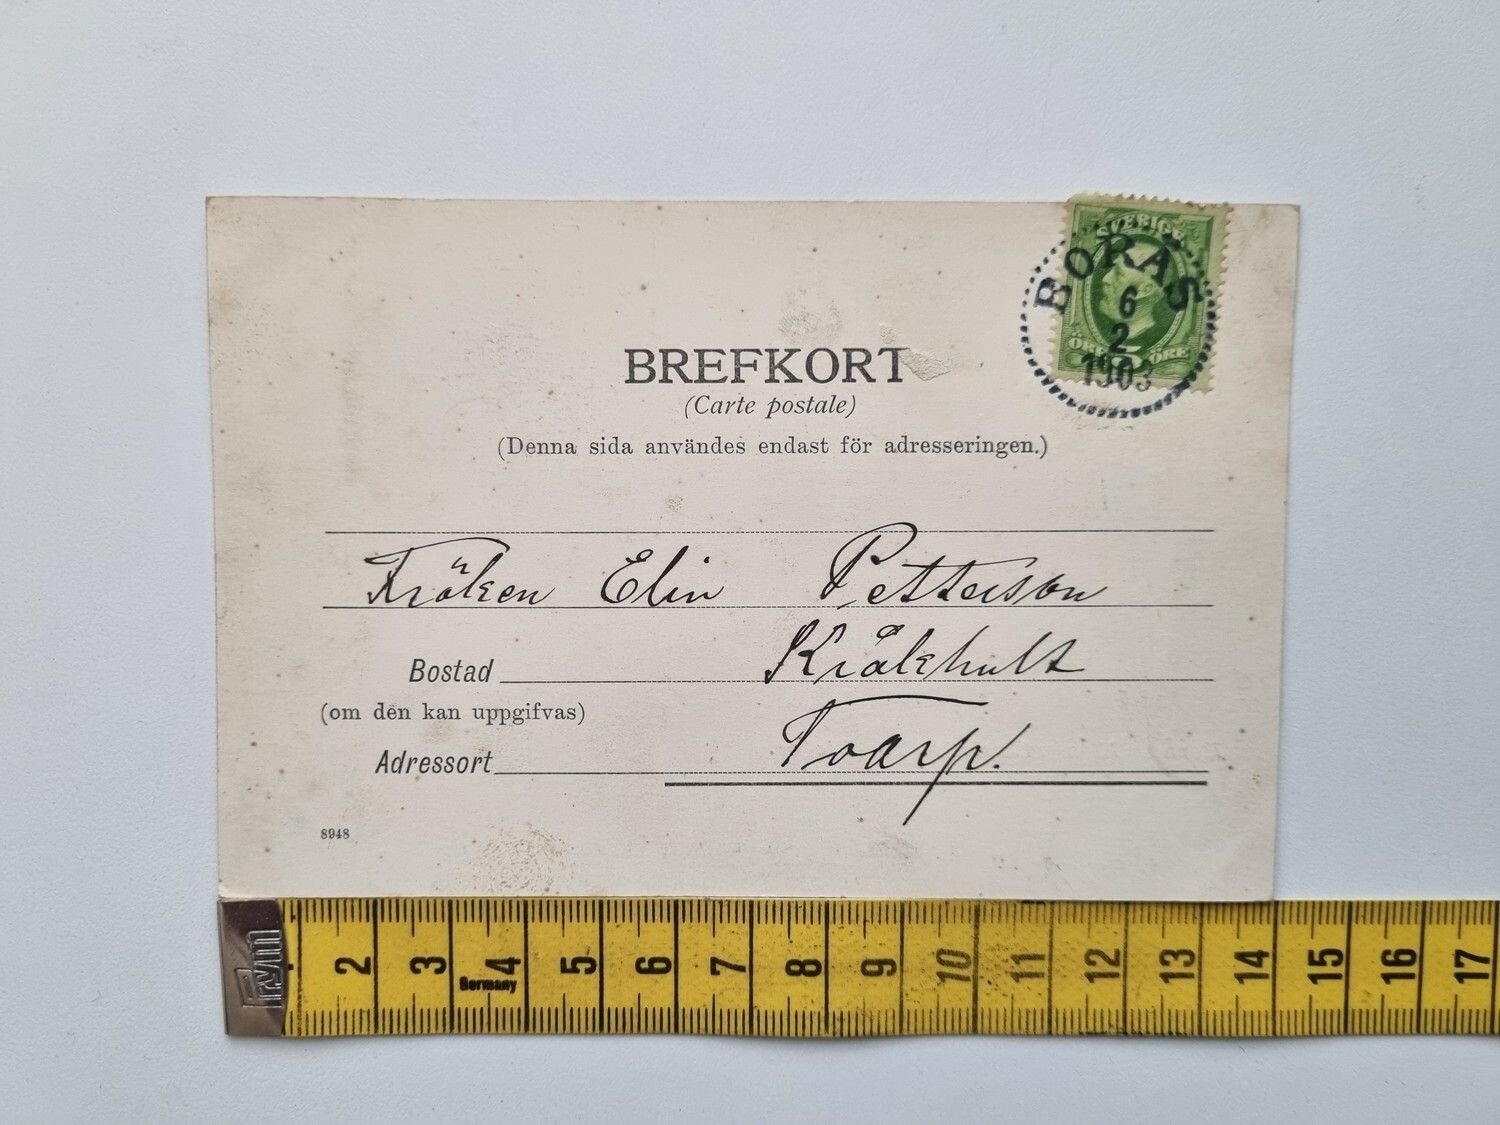 SVERIGE
BORÅS
6
2
1903
ÖRE ÖRE
BREFKORT
(Carte postale)
(Denna sida användes endast för adresseringen.)
Fröken Elin Petterson
Bostad Kråkhult
(om den kan uppgifvas)
Adressort Toarp.
8948
Prym
2 3 4 5 6 7 8 9 10 11 12 13 14 15 16 17
Germany